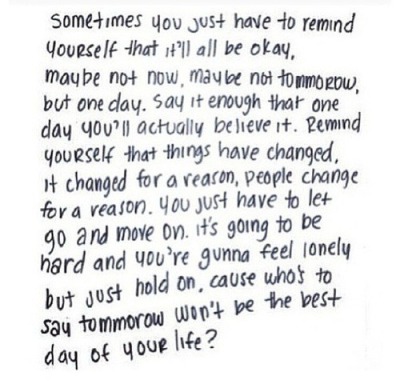 sometimes you just have to remind
yourself that it'll all be okay,
maybe not now, maybe not tommorow,
but one day. say it enough that one
day you'll actually believe it. Remind
yourself that things have changed,
it changed for a reason, people change
for a reason. you just have to let
go and move on. it's going to be
hard and you're gunna feel lonely
but just hold on, cause who's to
say tommorow won't be the best
day of your life?